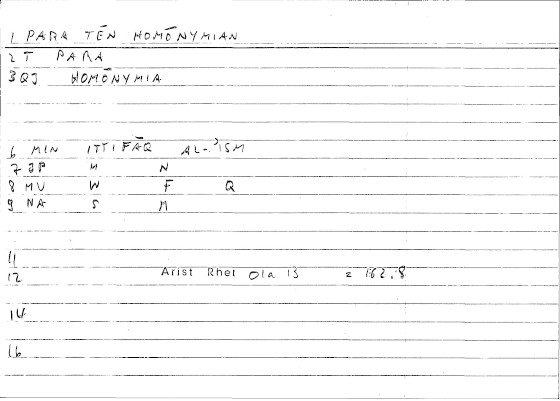 1 PARA TĒN HOMŌNYMIAN
2 T PARA
3 QJ HOMŌNYMIA
6 MIN ITTIFĀQ AL-'ISM
7 JP M N
8 MV W F Q
9 NA S M
11
12 Arist Rhet 01a 13 = 162.8
14
16